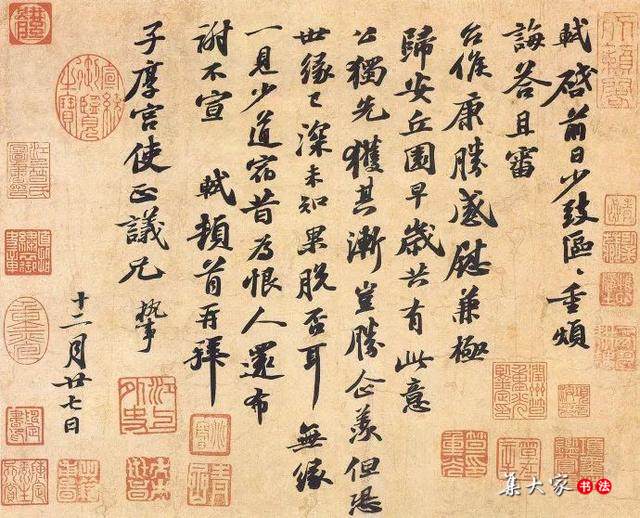 軾啓前日少致區〻重煩
誨答且審
台候康勝感慰兼極
歸安丘園早歲共有此意
公獨先獲其漸豈勝企羨但恐
世緣已深未知果脫否耳無緣
一見少道宿昔為恨人還布
謝不宣軾頓首再拜
子厚宮使正議兄執事
十二月廿七日
集大家书法